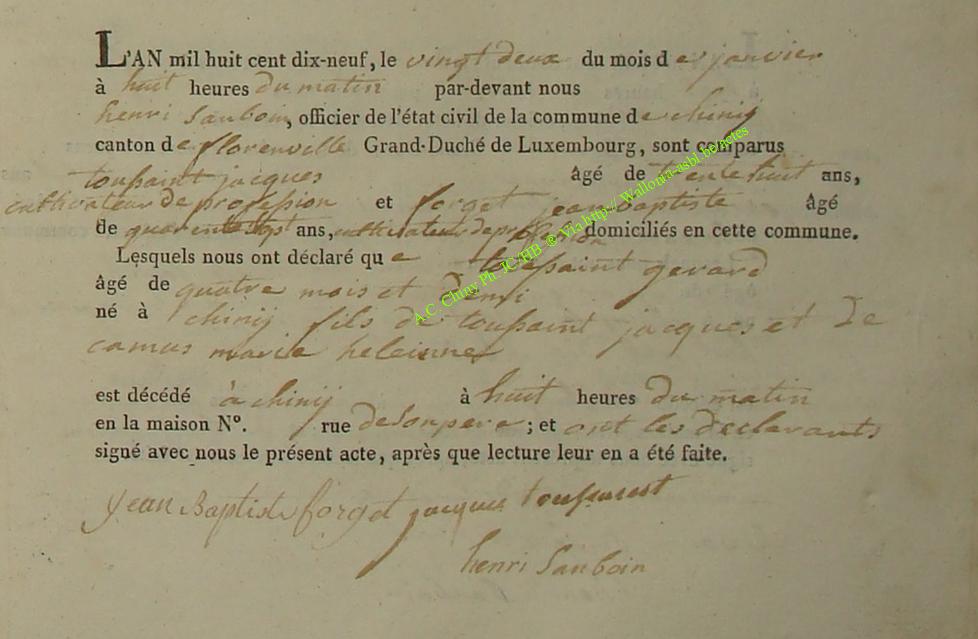 L'AN mil huit cent dix-neuf, le vingt deux du mois de janvier
à huit heures du matin par-devant nous
henri Sauboin, officier de l'état civil de la commune de chinij
canton de florenville Grand-Duché de Luxembourg, sont comparus
toussaint jacques âgé de trente huit ans,
cultivateur de profession et forget jean baptiste âgé
de quarente sept ans, cultivateur de profession domiciliés en cette commune.
Lesquels nous ont déclaré que toussaint gerard
âgé de quatre mois et demi
né à chinij fils de toussaint jacques et de
camus marie heleinne
est décédé à chinij à huit heures du matin
en la maison N°. rue de son pere; et ont les declarants
signé avec nous le présent acte, après que lecture leur en a été faite.
jean Baptiste forget jacques toussaint
henri Sauboin
A.C. Chiny Ph. JC/HB ® Via http:// Wallonia-asbl.be/actes